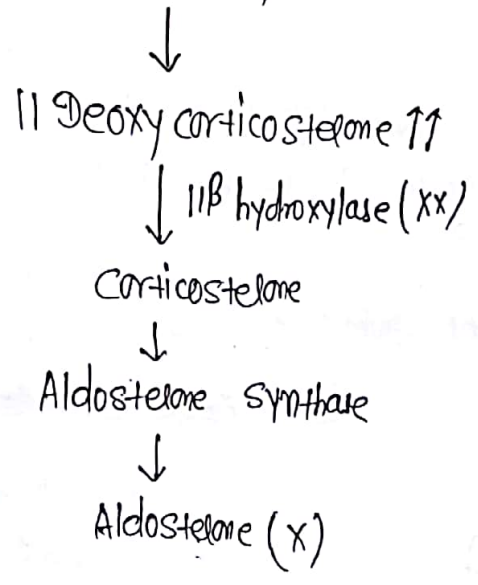 ↓
11 Deoxy corticosterone ↑↑
↓ 11β hydroxylase (xx)
Corticosterone
↓
Aldosterone synthase
↓
Aldosterone (x)